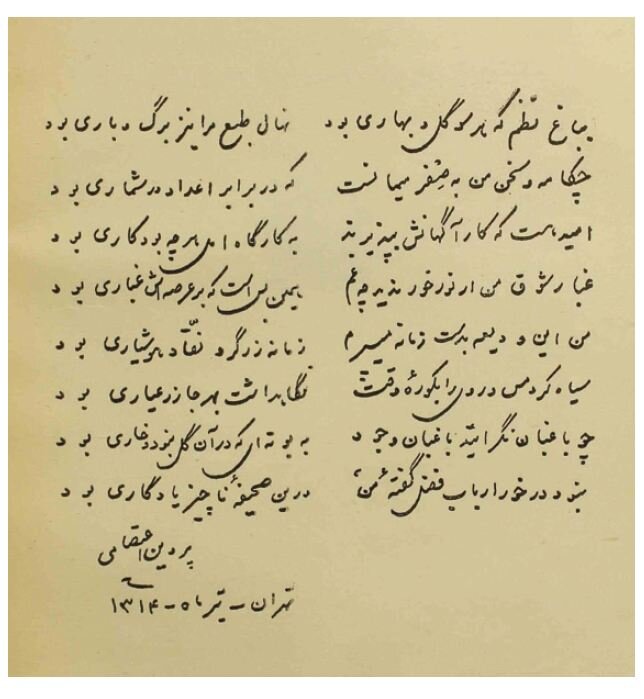 بباغ نظم که هر سو گل و بهاری بود    نهال طبع مرا نیز برگ و باری بود
چکامه و سخن من به صفر میمانست    که در برابر اعداد در شماری بود
امید هست که کارآگهانش بپذیرند    به کارگاه امل هر چه بود کاری بود
غبار شوق من ار نور خور ندید چه غم    همین بس است که بر عرصه‌اش غباری بود
من این ودیعه بدست زمانه میسپرم    زمانه زرگر و نقّاد هوشیاری بود
سیاه کرد مس و روی را بکورهٔ وقت    نگاهداشت بهر جا زر عیاری بود
چو باغبان نگرائید باغبان وجود    به بوته‌ای که در آن گل نبود و خاری بود
نبود درخور ارباب فضل گفتهٔ من    درین صحیفهٔ ناچیز یادگاری بود
پروین اعتصامی
تهران - تیر ماه - ۱۳۱۴